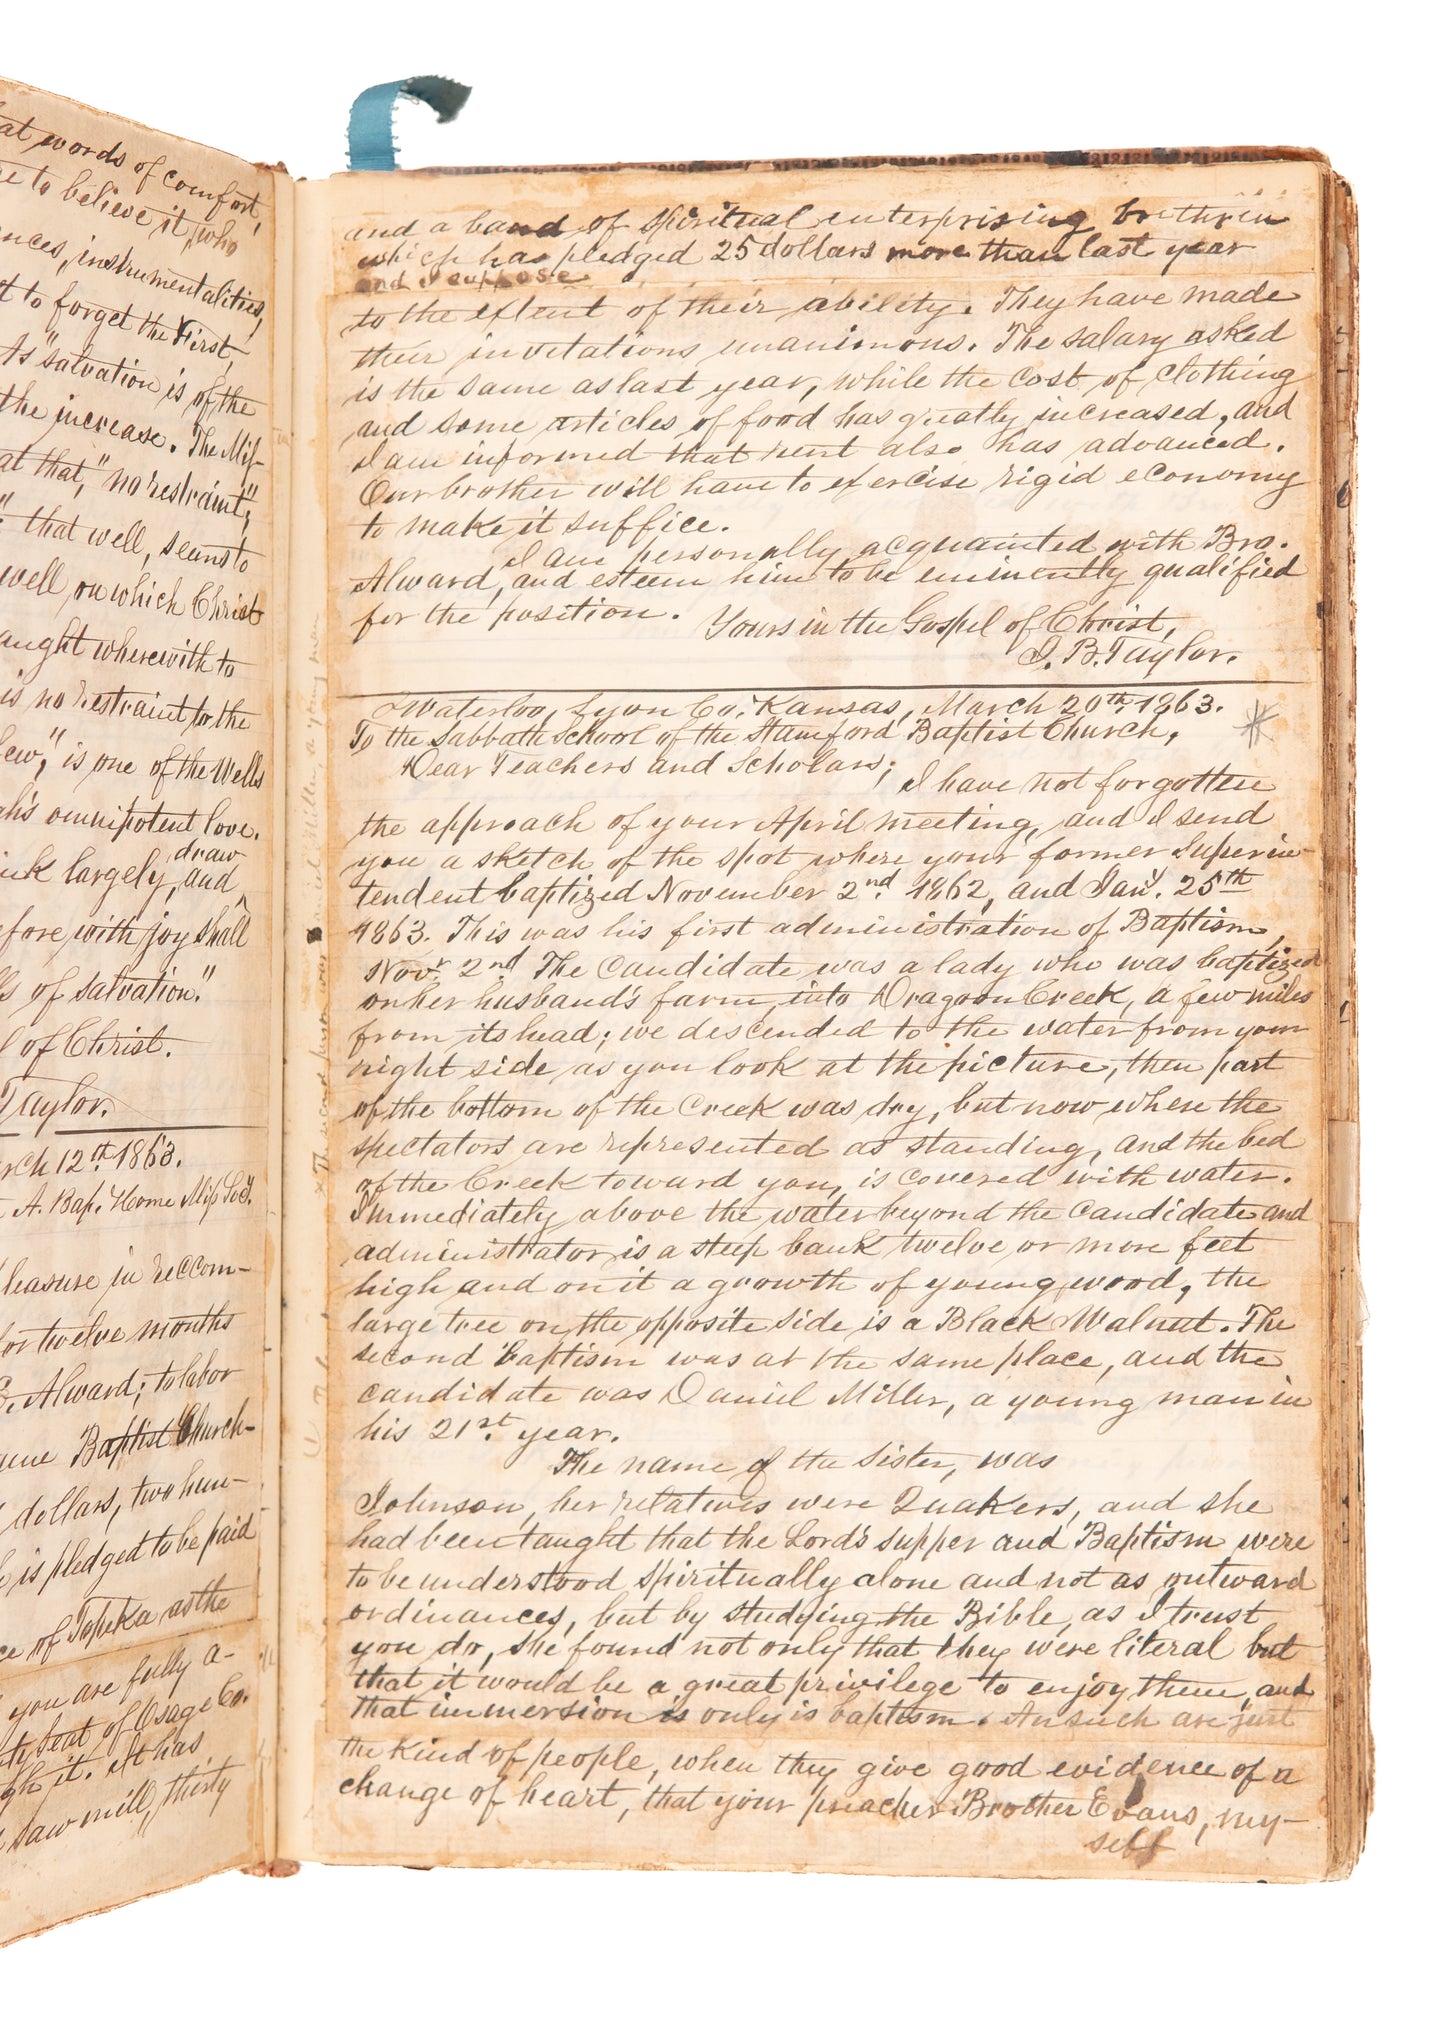 at words of comfort,
e to believe it, who
nces, instrumentalities,
t to forget the First,
ts "salvation is of the
the increase. The Mis-
at that, "no restraint",
" that well, seems to
well on which Christ
aught wherewith to
is no restraint to the
few," is one of the Wells
ah's omnipotent love.
draw
ink largely, and
efore, with joy shall
ls of salvation."
l of Christ.
Taylor.
rch 12th. 1863.
A. Bap. Home Miss Socy.
leasure in reccom-
for twelve months
Alward; to labor
Baptist Church-
dollars, two hun-
is pledged to be paid
ce of Topeka as the
you are fully a-
ty seat of Osage Co.
gh it. It has
saw mill, thirty
and a band of spiritual enterprising brethren
which has pledged 25 dollars more than last year
and I suppose
to the extent of their ability. They have made
their invitations unanimous. The salary asked
is the same as last year, while the cost of clothing
and some articles of food has greatly increased, and
I am informed that rent also has advanced.
Our brother will have to exercise rigid economy
to make it suffice.
I am personally acquainted with Bro.
Alward, and esteem him to be eminently qualified
for the position.
Yours in the Gospel of Christ,
I. B. Taylor.
Waterloo, Lyon Co. Kansas, March 20th. 1863.
To the Sabbath School of the Stamford Baptist Church,
Dear Teachers and Scholars;
I have not forgotten
the approach of your April meeting, and I send
you a sketch of the spot where your former Superin-
tendent baptized November 2nd. 1862, and Jany. 25th
1863. This was his first administration of Baptism,
Novr. 2nd. The Candidate was a lady who was baptized
on her husband's farm, into Dragoon Creek, a few miles
from its head; we descended to the water from your
right side as you look at the picture, then part
of the bottom of the Creek was dry, but now where the
spectators are represented as standing, and the bed
of the Creek toward you, is covered with water.
Immediately above the water beyond the Candidate and
administrator is a steep bank twelve or more feet
high and on it a growth of young wood, the
large tree on the opposite side is a Black Walnut. The
second baptism was at the same place, and the
candidate was Daniel Miller, a young man in
his 21st. year.
The name of the Sister, was
Johnson, her relatives were Quakers, and she
had been taught that the Lord's supper and Baptism were
to be understood spiritually alone and not as outward
ordinances, but by studying the Bible, as I trust
you do, she found not only that they were literal but
that it would be a great privilege to enjoy them, and
that immersion is only is baptism. As such are just
the kind of people, when they give good evidence of a
change of heart, that your preacher Brother Evans, my-
self
The second
was Daniel Miller, a young man